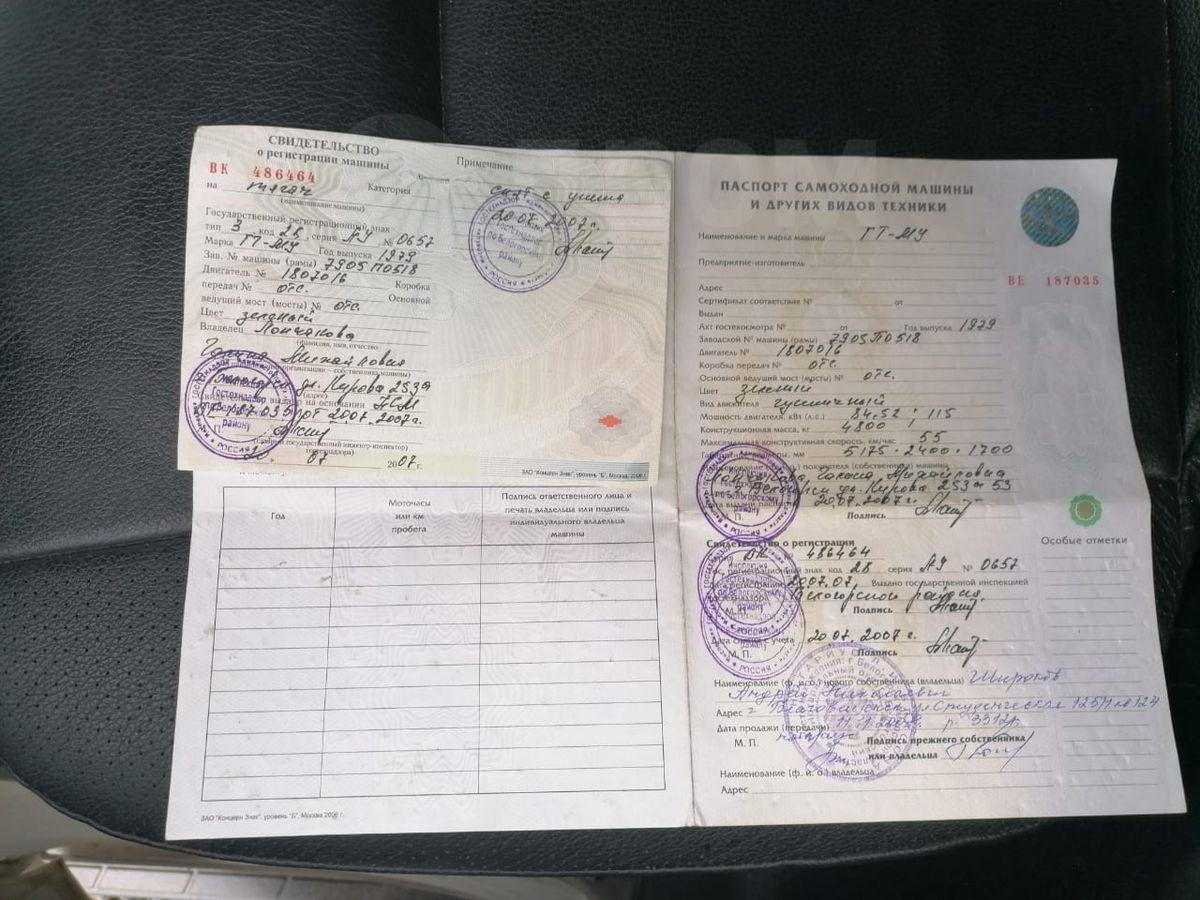 СВИДЕТЕЛЬСТВО
о регистрации машины
ВК 486464
на тягач Категория
(наименование машины)
Государственный регистрационный знак
тип 3 код 28 серия АУ № 0657
Марка ГТ-МУ Год выпуска 1979
Зав. № машины (рамы) 7905П0518
Двигатель № 1807016 Коробка
передач № отс. Основной
ведущий мост (мосты) № отс.
Цвет зеленый
Владелец Лончакова
(фамилия, имя, отчество
Михайловна
ул. Кирова 253а
(адрес)
выдано на основании ПСМ
от 2007.2007г.
07 2007 г.
ЗАО "Концерн Знак", уровень "Б", Москва, 2006 г.
Примечание
снят с учета
20.07.2007г.
Год
Моточасы
или км
пробега
Подпись ответственного лица и
печать владельца или подпись
индивидуального владельца
машины
ЗАО "Концерн Знак", уровень "Б", Москва 2006 г.
ПАСПОРТ САМОХОДНОЙ МАШИНЫ
И ДРУГИХ ВИДОВ ТЕХНИКИ
Наименование и марка машины ГТ-МУ
Предприятие-изготовитель
ВЕ 187035
Адрес
Сертификат соответствия № от
Выдан
Акт гостехосмотра № от Год выпуска 1979
Заводской № машины (рамы) 7905П0518
Двигатель № 1807016
Коробка передач № отс.
Основной ведущий мост (мосты) № отс.
Цвет зеленый
Вид движителя гусеничный
Мощность двигателя, кВт (л.с.) 84.52 115
Конструкционная масса, кг 4800
Максимальная конструктивная скорость, км/час 55
Габаритные размеры, мм 5175 · 2400 · 1700
Наименование покупателя (собственника) машины
Михайловна
ул. Кирова 253а 53
Дата выдачи паспорта 20.07.2007г.
М. П. Подпись
Особые отметки
Свидетельство о регистрации
серия ВК № 486464
Гос. регистрационный знак код 28 серия АУ № 0657
Дата регистрации 2007.07. Выдано государственной инспекцией
гостехнадзора Белогорского района
М. П. Подпись
Дата снятия с учета 20 07. 2007 г.
М. П. Подпись
Наименование (ф. и. о.) нового собственника (владельца) Широков
Андрей
Адрес г. Благовещенск ул. Студенческая
Дата продажи (передачи)
М. П. нотариус Подпись прежнего собственника
или владельца
Наименование (ф. и. о.) владельца
Адрес